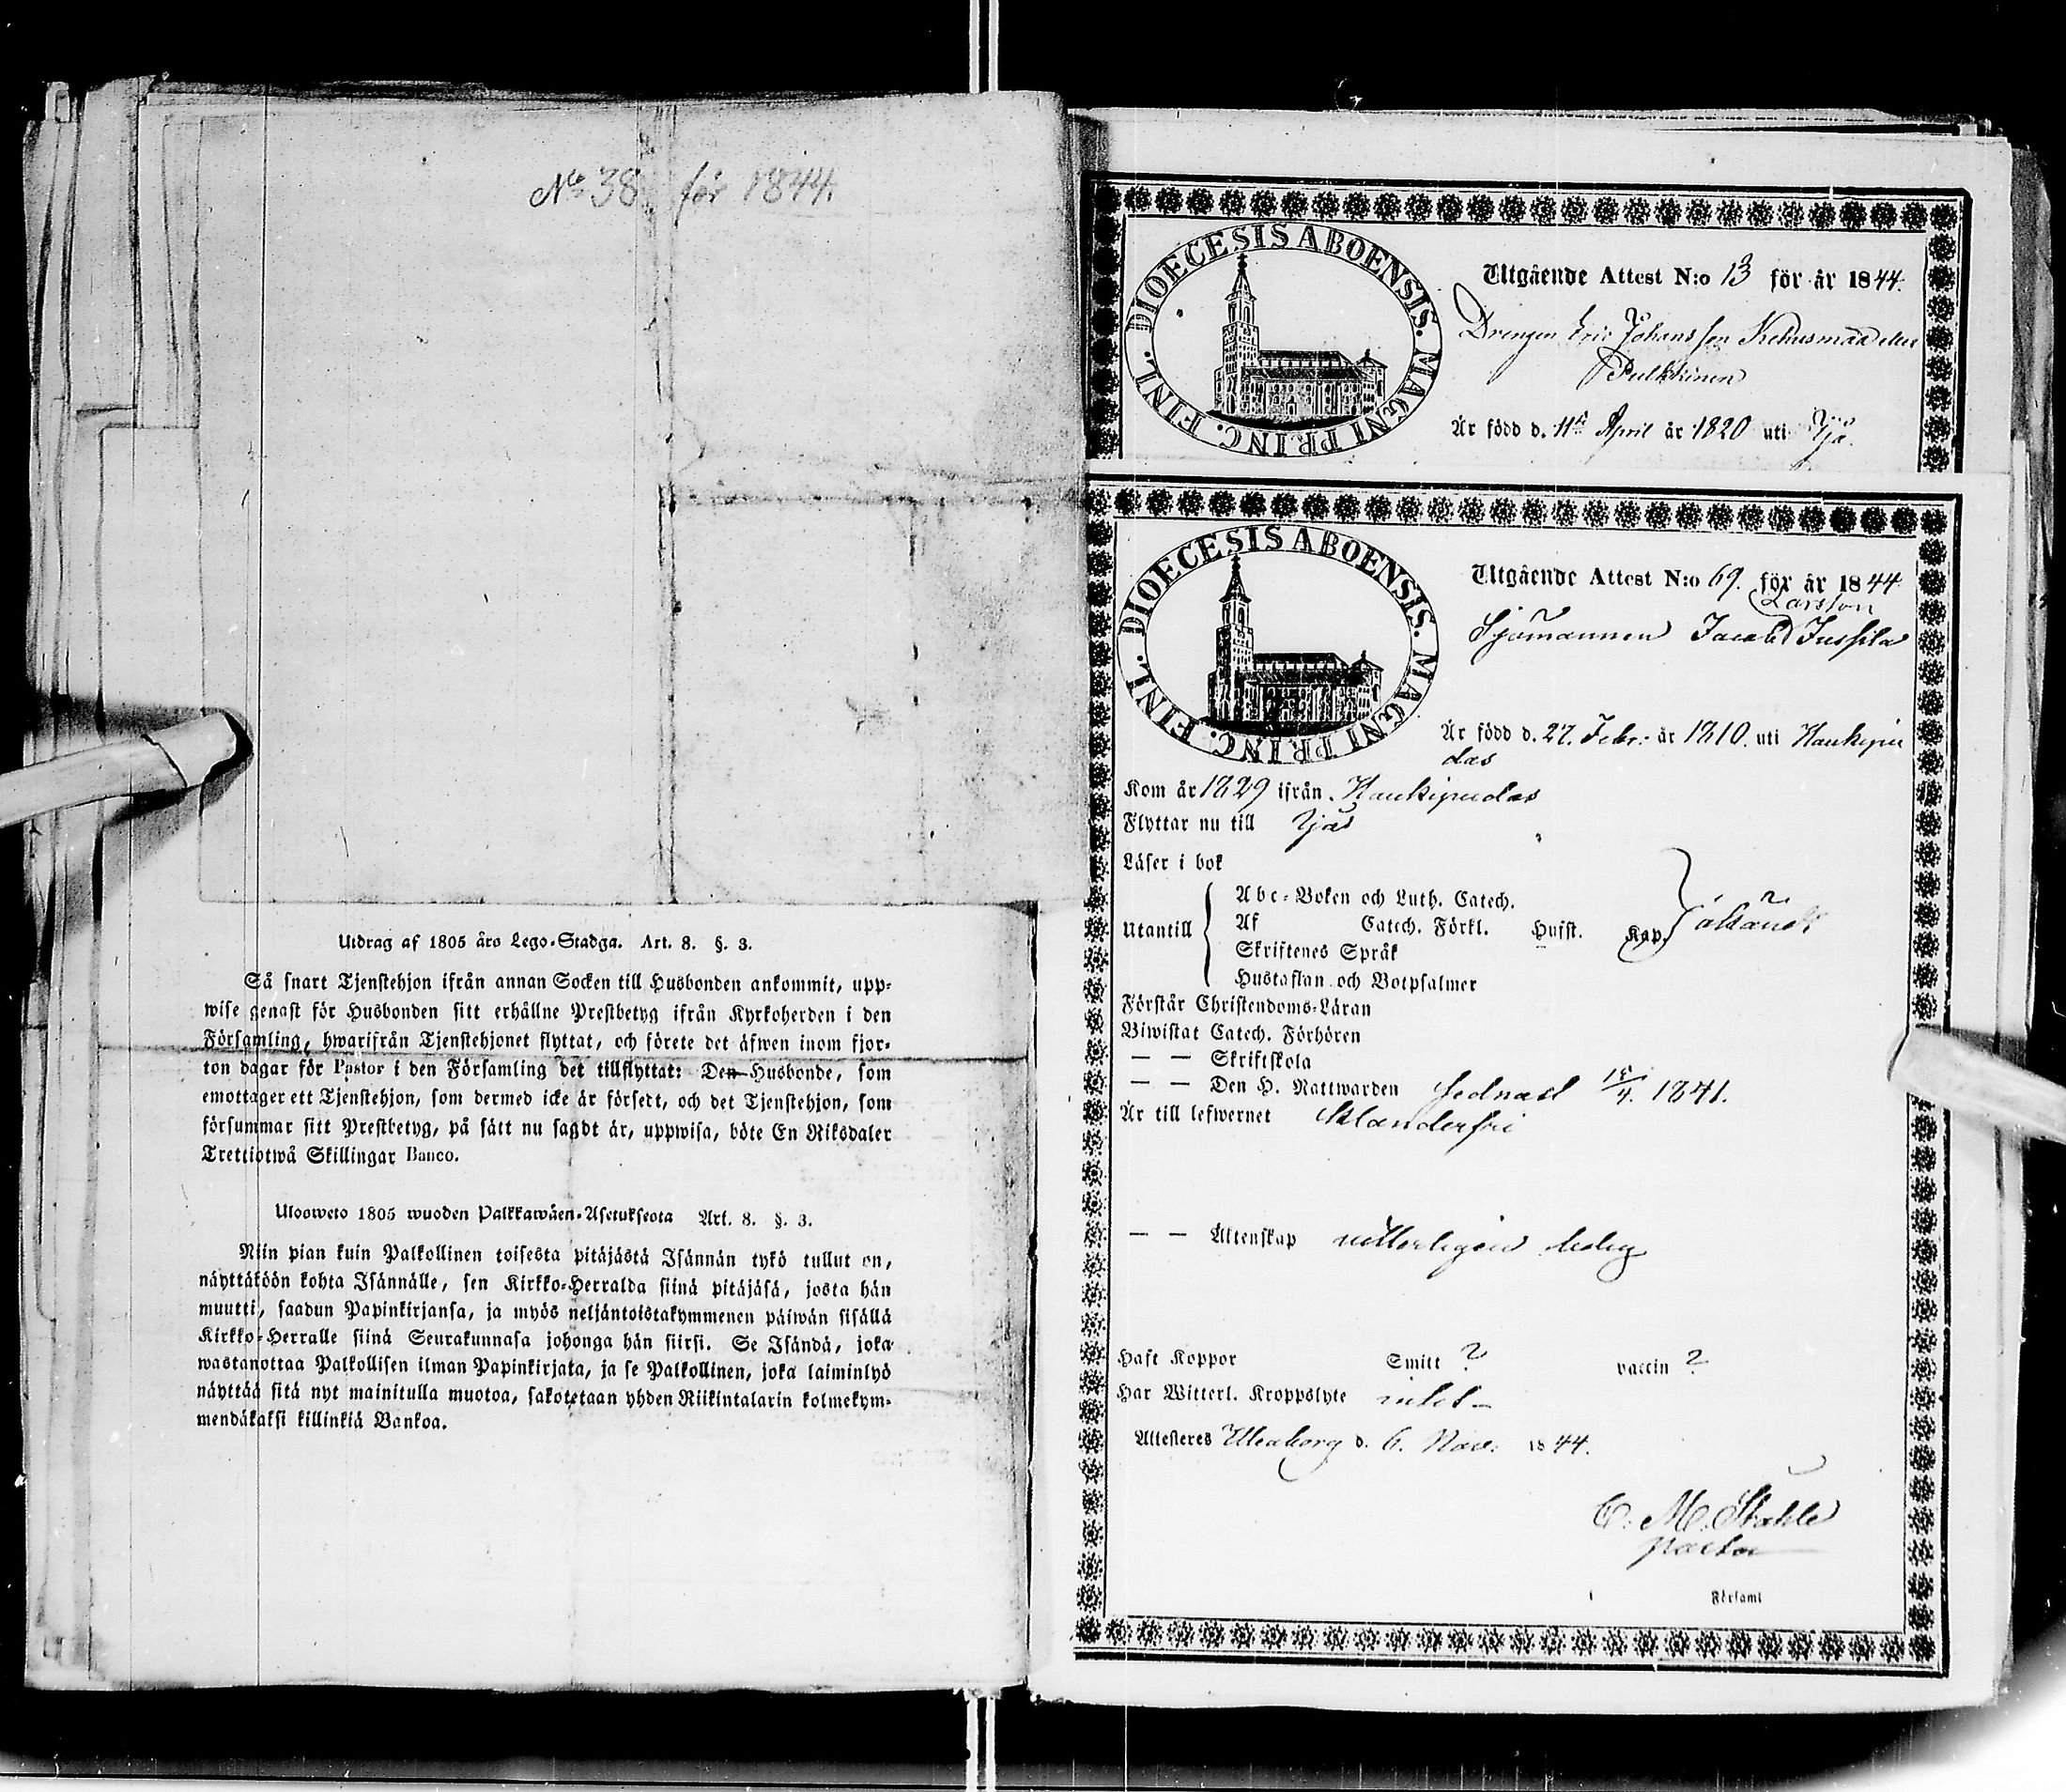 No 38 för 1844.
Utdrag af 1805 års Lego-Stadga. Art. 8. §. 3.
Så snart Tjenstehjon ifrån annan Socken till Husbonden ankommit, upp-
wise genast för Husbonden sitt erhållne Prestbetyg ifrån Kyrkoherden i den
Församling, hwarifrån Tjenstehjonet flyttat, och förete det äfwen inom fjor-
ton dagar för Pastor i den Församling det tillflyttat: Den Husbonde, som
emottager ett Tjenstehjon, som dermed icke är försedt, och det Tjenstehjon, som
försummar sitt Prestbetyg, på sätt nu sagdt är, uppwisa, böte En Riksdaler
Trettiotwå Skillingar Banco.
Ulosweto 1805 wuoden Palkkawäen-Asetuksesta Art. 8. §. 3.
Niin pian kuin Palkollinen toisesta pitäjästä Isännän tykö tullut on,
näyttäköön kohta Isännälle, sen Kirkko-Herralda siinä pitäjäsä, josta hän
muutti, saadun Papinkirjansa, ja myös neljäntoistakymmenen päiwän sisällä
Kirkko-Herralle siinä Seurakunnasa johonga hän siirsi. Se Isändä, joka
wastanottaa Palkollisen ilman Papinkirjata, ja se Palkollinen, joka laiminlyö
näyttää sitä nyt mainitulla muotoa, sakotetaan yhden Riikintalarin kolmekym-
mendäkaksi killinkiä Bankoa.
DIOECESIS ABOENSIS. MAGNI PRINC. FINL.
Utgående Attest N:o 13 för år 1844.
Drengen Eric Johansson Kehusmaa eller
Pulkkinen
Är född d. 11te April år 1820 uti Ijo.
DIOECESIS ABOENSIS. MAGNI PRINC. FINL.
Utgående Attest N:o 69. för år 1844
Larsson
Sjömannen Jacob Jussila
Är född d. 27. Febr: år 1810. uti Haukipu
das
Kom år 1829 ifrån Haukipudas
Flyttar nu till Ijo
Läser i bok
Utantill
Abc-Boken och Luth. Catech.
Af Catech. Förkl. Hufst. Kap.
Skriftenes Språk
Hustaflan och Botpsalmer
Förstår Christendoms-Läran
Biwistat Catech. Förhören
— — Skriftskola
— — Den H. Nattwarden sednast 18/4. 1841.
Är till lefwernet klanderfri
— — Äktenskap veterligen ledig
Haft Koppor Smitt ? vaccin ?
Har Witterl. Kroppslyte intet
Attesteres Uleaborg d. 6. Nov: 1844.
C. M. Ståhle
pastor
i Församl